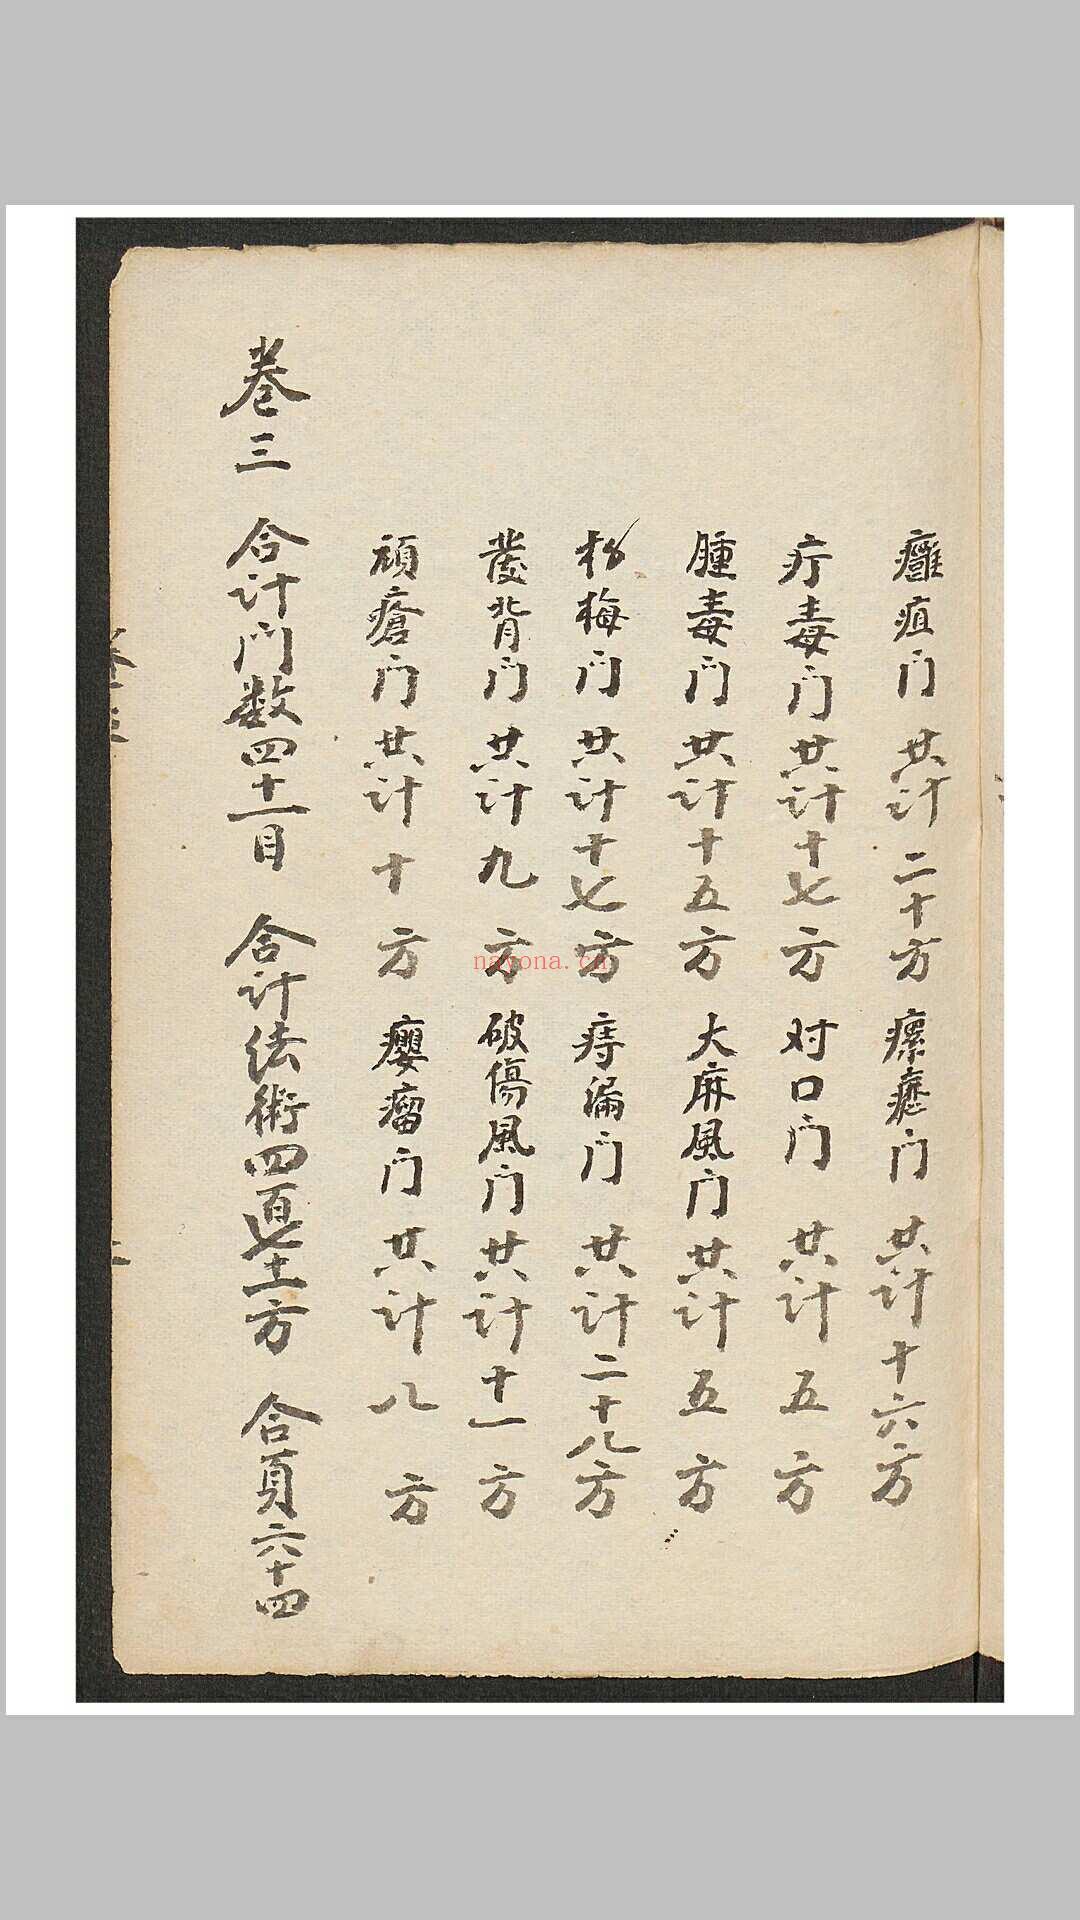 癰疽门 共计二十方 瘰癧门 共计十六方
疔毒门 共计十七方 对口门 共计五方
腫毒门 共计十五方 大麻風门 共计五方
杨梅门 共计十七方 痔漏门 共计二十八方
發背门 共计九方 破傷風门 共计十一方
頑瘡门 共计十方 癭瘤门 共计八方
卷三 合计门数四十一目 合计法術四百七十二方 合頁六十四
nayona.cn